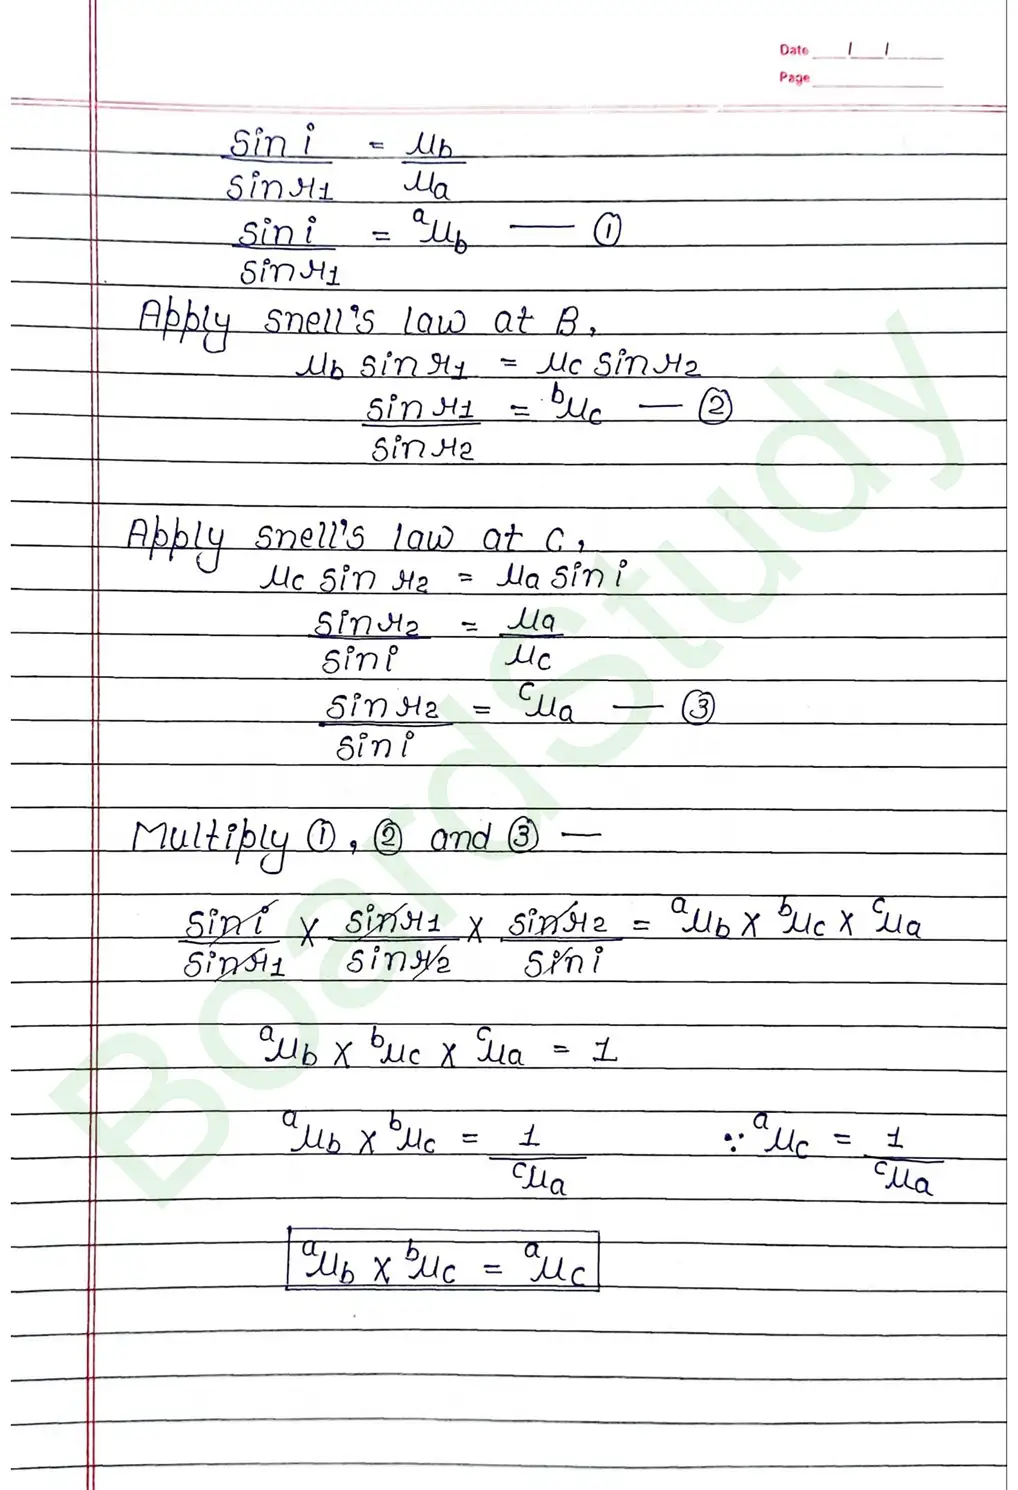 Date / /
Page
sin i / sin r1 = μb / μa
sin i / sin r1 = ᵃμb — ①
Apply snell's law at B,
μb sin r1 = μc sin r2
sin r1 / sin r2 = ᵇμc — ②
Apply snell's law at C,
μc sin r2 = μa sin i
sin r2 / sin i = μa / μc
sin r2 / sin i = ᶜμa — ③
Multiply ①, ② and ③ —
sin i / sin r1 × sin r1 / sin r2 × sin r2 / sin i = ᵃμb × ᵇμc × ᶜμa
ᵃμb × ᵇμc × ᶜμa = 1
ᵃμb × ᵇμc = 1 / ᶜμa ∵ ᵃμc = 1 / ᶜμa
ᵃμb × ᵇμc = ᵃμc
BoardStudy